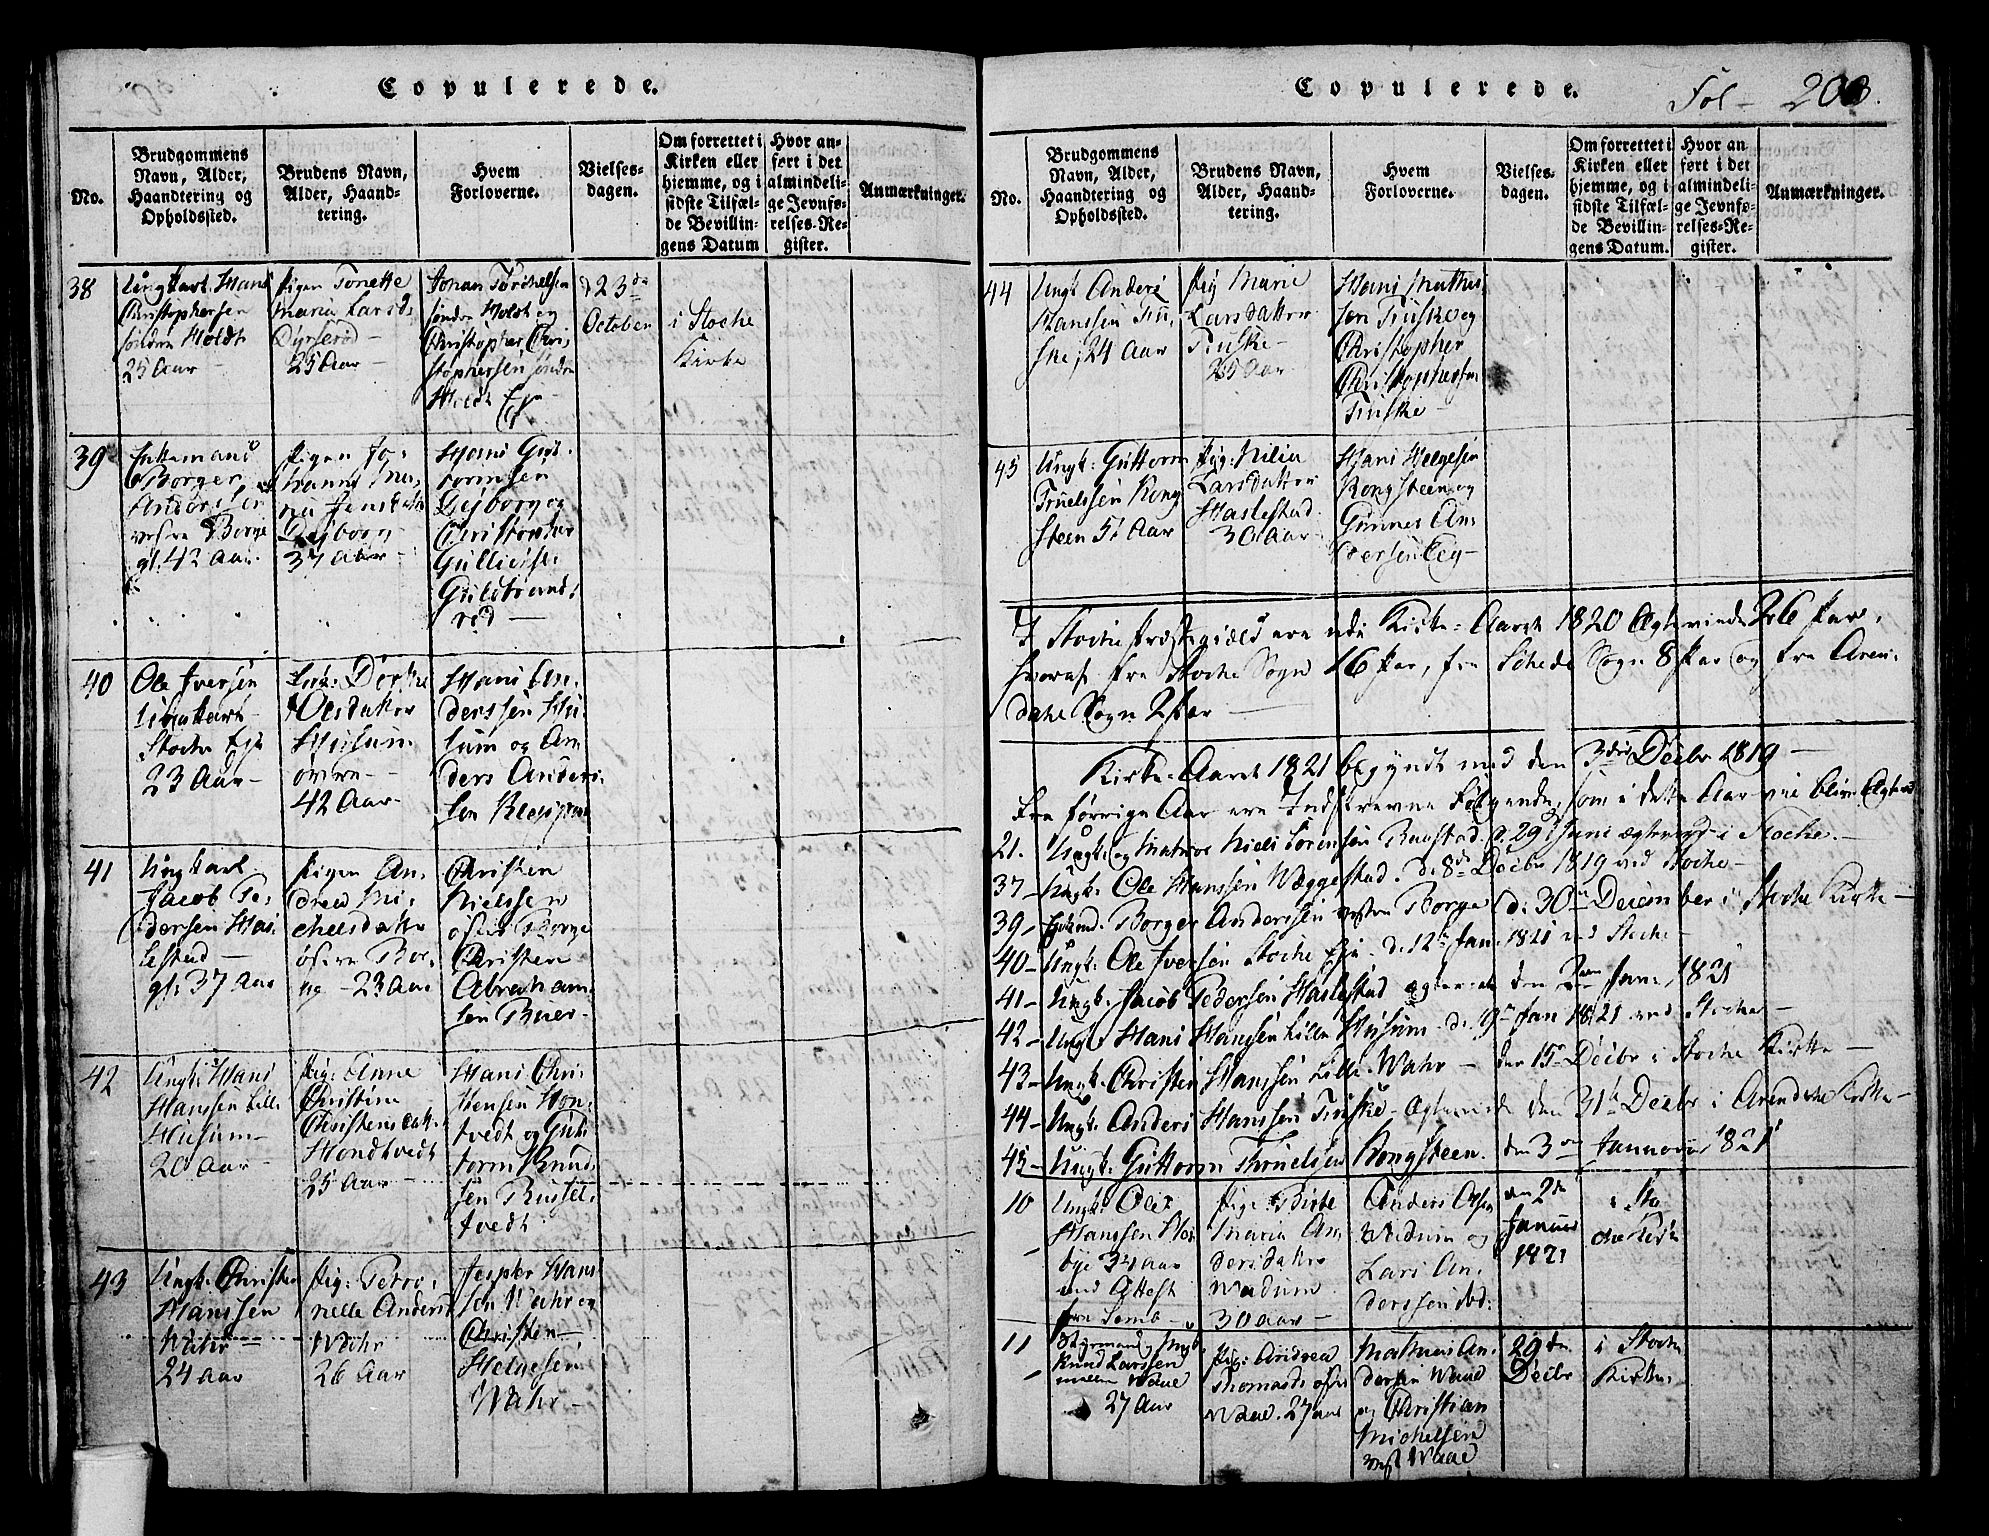 Copulerede.
No.
Brudgommens
Navn, Alder,
Haandtering og
Opholdssted.
Brudens Navn,
Alder, Haand-
tering.
Hvem
Forloverne.
Vielses-
dagen.
Om forrettet i
Kirken eller
hjemme, og i
sidste Tilfæl-
de Bevillin-
gens Datum
Hvor an-
ført i det
almindeli-
ge Jevnfø-
relses-Re-
gister.
Anmærkninger.
38
Ungkarl Hans
Christophersen
søndre Holdt
25 Aar
Pigen Tonette
Maria Larsd.
Dyrserød
25 Aar
Johan
søndre Holdt og
Christopher Chri-
stophersen søndre
Holdt
d 23de
October
i Stocke
Kirke
39
Enkemand
Borger
Andersen
vestre Borge
gl. 42 Aar
Pigen Jo-
hanne
Dejborg
37 Aar
Hans Gut-
tormsen
Dejborg og
Christopher
Guldbrands-
rød
40
Ole Iversen
Ungkarl
Stocke
23 Aar
Dorthe
Olsdatter
Husum
øvre
42 Aar
Hans An-
derssen Hu-
sum og An-
ders Anders-
sen
41
Ungkarl
Jacob Pe-
dersen Has-
lestad
gl. 37 Aar
Pigen An-
drea Mi-
chelsdatter
østre Bor-
ge 23 Aar
Christen
Nielssen
østre Borge
Christen
Abraham-
sen
42
Ungk: Hans
Hanssen Lille
Husum
20 Aar
Pig: Anne
Christine
Christensdatt.
Hondtvedt
25 Aar
Hans Chri-
stensen Hon-
tvedt og Gut-
torm Knud-
sen Russel-
tvedt
43
Ungk: Christen
Hanssen
Wahr
24 Aar
Pig: Petro-
nelle Andersd.
Wahr
26 Aar
Jesper Hans-
sen Wahr og
Christen
Helgesen
Wahr
Copulerede.
Fol - 203.
No.
Brudgommens
Navn, Alder,
Haandtering og
Opholdssted.
Brudens Navn,
Alder, Haand-
tering.
Hvem
Forloverne.
Vielses-
dagen.
Om forrettet i
Kirken eller
hjemme, og i
sidste Tilfæl-
de Bevillin-
gens Datum.
Hvor an
ført i det
almindeli-
ge Jevnfø-
relses-Re-
gister.
Anmærkninger.
44
Ungk Anders
Hanssen
24 Aar
Pig Marie
Larsdatter
25 Aar
Hans Mathis-
sen
Christopher
Christophersen
45
Ungk: Guttorm
Truelssen Rong
steen 51 Aar
Pig: Nilia
Larsdatter
Haslestad
30 Aar
Hans Helgesen
Rongsteen og
Gunner An-
dersen Eeg
I Stocke Præstegield ere udi Kirke-Aaret 1820 Ægteviede 26 Par,
hvoraf fra Stocke Sogn 16 Par, fra Schede Sogn 8 Par og fra Aren-
dahe Sogn 2 Par
Kirke-Aaret 1821 begyndt med den 3die Decbr 1819
Fra forrige Aar ere Indskrevne Følgende, som i dette Aar
21. Ungk: og Matros Niels Sørensen d. 29 Juni ægteviet i Stocke.
37 - Ungk: Ole Hanssen Wæggestad. d. 8de Decbr 1819 ved Stocke
39 - Borger Andersen vestre Borge d. 30te December i Stocke Kirke
40 - Ungk: Ole Iversen Stocke d. 12te Jan. 1821 ved Stocke
41 - Ungk: Jacob Pedersen Haslestad ægteviet den Jan. 1821
42 - Ungk: Hans Hanssen Lille Husum d. 9de Jan 1821 ved Stocke
43 - Ungk: Christen Hanssen Lille Wahr - den 15de Decbr i Stocke Kirke
44 - Ungk: Anders Hanssen Ægteviede den 31te Decbr i Arendahe Kirke
45 - Ungk: Guttorm Thruelssen Rongsteen. den 3die Januar 1821
10
Ungk: Oler
Hanssen
34 Aar
med Attest
fra Semb
Pig: Birte
Maria An-
dersdatter
Wadum
30 Aar
Anders Olsen
Wadum og
Lars An-
derssen
den 2den
Januar
1821
i Sto-
cke Kirke
11
Styrmand, Ungk.
Knud Larssen
mellem Waae
27 Aar
Pig: Andrea
Thomasd:
Waae. 27 aar
Mathias An-
dersen Waae
og Christian
Michelsen
Waae
29de
Decbr
i Stocke
Kirke